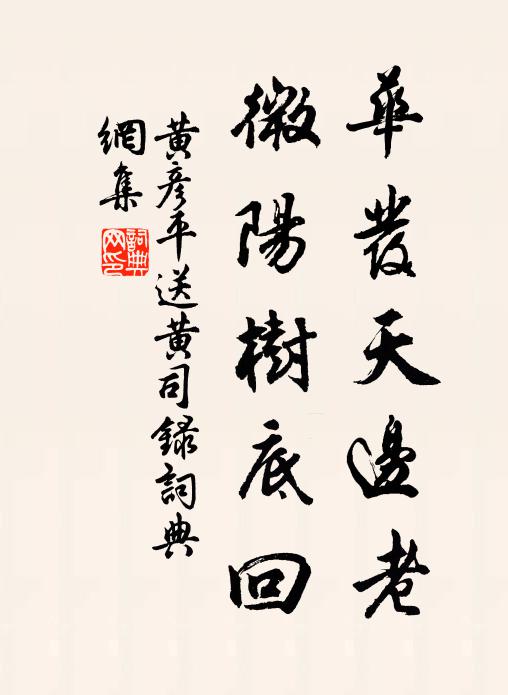 華發天邊老
微陽樹底回
黄彥平送黄司録詞典
網集
詞典
网印